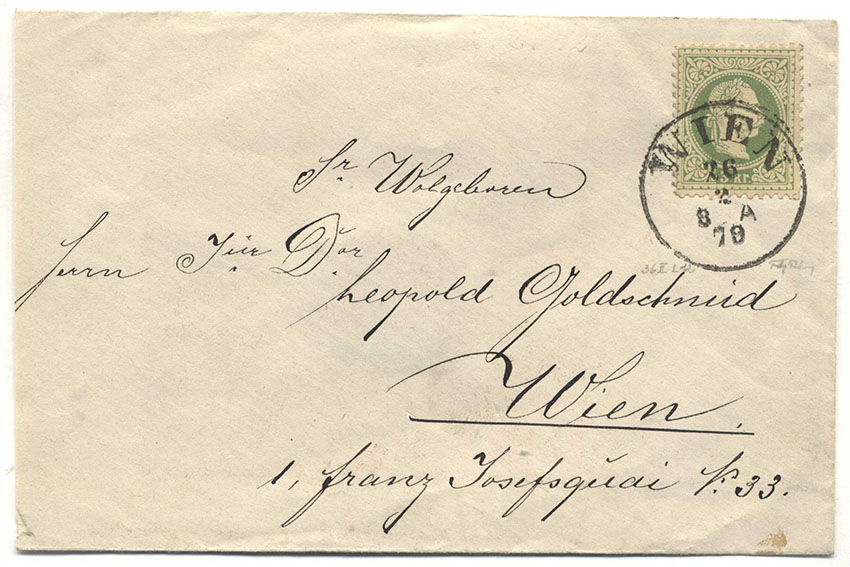 WIEN
26
2
8 A
79
Sr Wolgeboren
Herrn Jur Dor
Leopold Goldschmid
Wien.
1, Franz Josefsquai No 33.